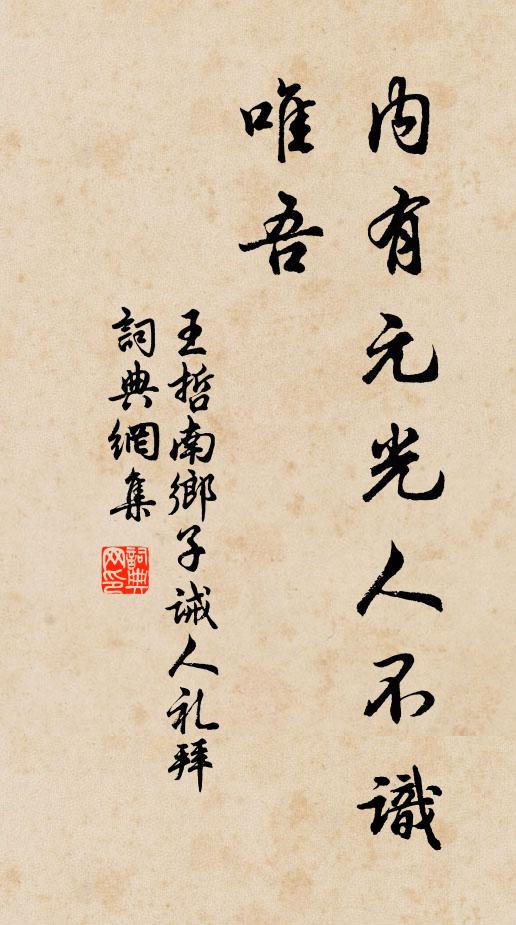 內有元光人不識
唯吾
王哲南鄉子誡人礼拜
詞典網集
詞典网印